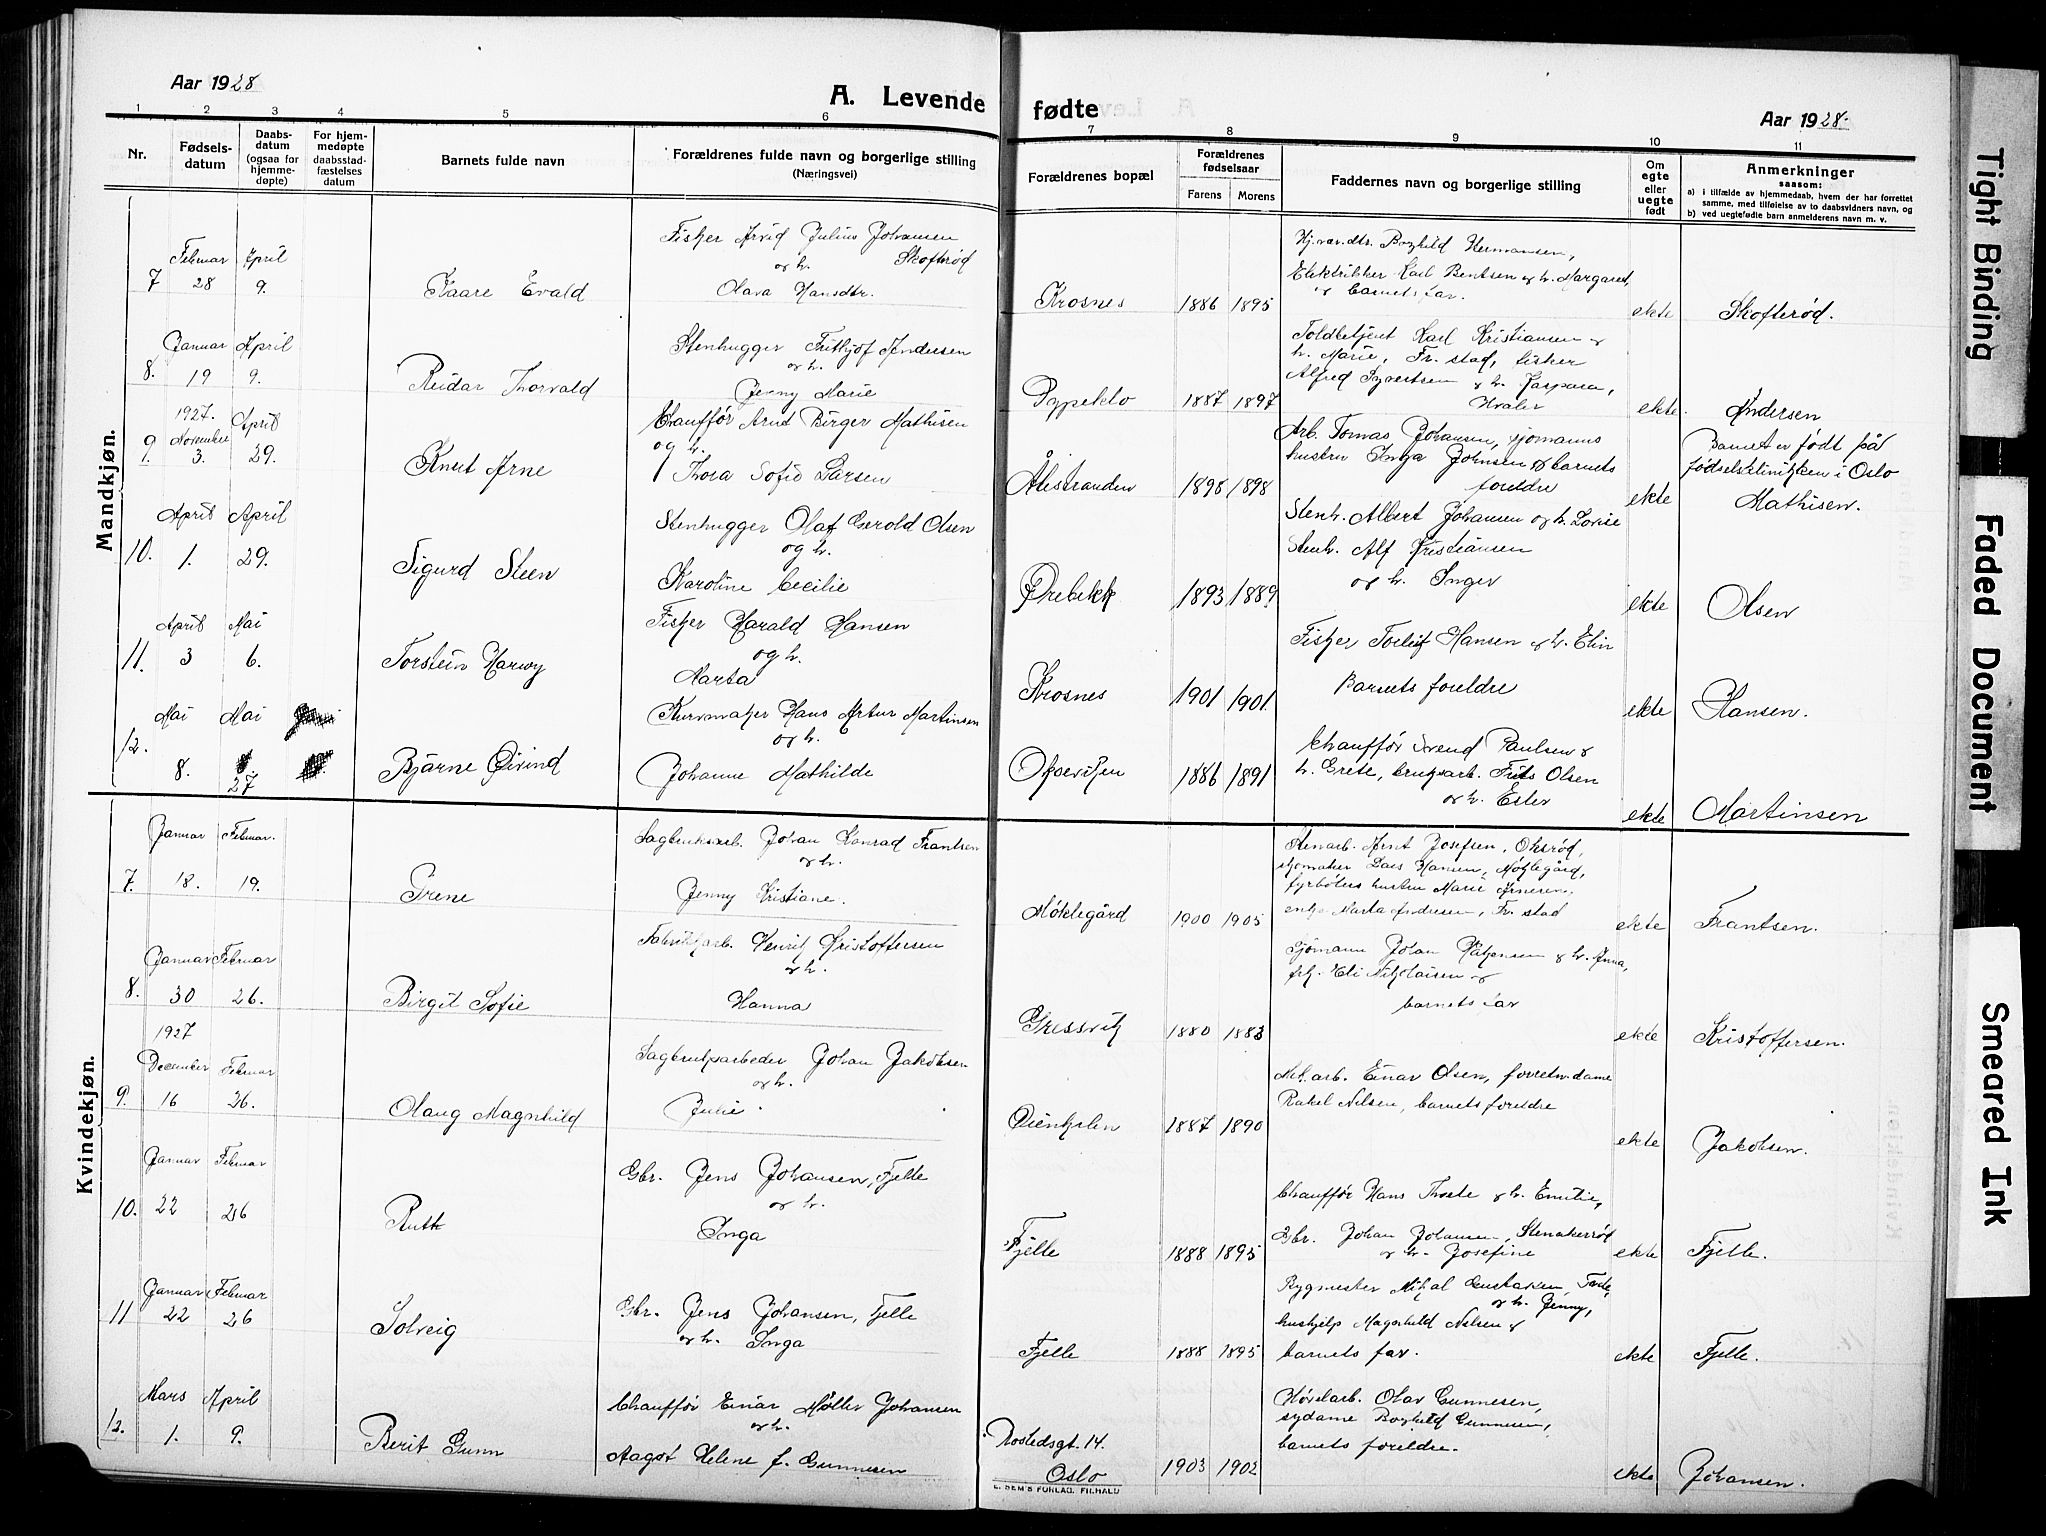 Aar 1928
A. Levende fødte
Aar 1928.
1 2 3 4 5 6 7 8 9 10 11
Nr.
Fødsels-
datum
Daabs-
datum
(ogsaa for
hjemme-
døpte)
For hjem-
medøpte
daabsstad-
fæstelses
datum
Barnets fulde navn
Forældrenes fulde navn og borgerlige stilling
(Næringsvei)
Forældrenes bopæl
Forældrenes
fødselsaar
Farens Morens
Faddernes navn og borgerlige stilling
Om
egte
eller
uegte
født
Anmerkninger
saasom:
a) i tilfælde av hjemmedaab, hvem der har forrettet
samme, med tilføielse av to daabsvidners navn, og
b) ved uegtefødte barn anmelderens navn m. v.
Mandkjøn.
7
Februar 28
April 9.
Kaare Evald
Fisker Arvid Julius Johansen
og h. Skofterød
Olava Hansdtr.
Krosnes
1886 1895
Hj.vær.dtr. Borghild Hermansen,
Elektrikker Karl Bentsen og h. Margaret,
og barnets far.
ekte
Skofterød.
8.
Januar 19
April 9.
Reidar Thorvald
Stenhugger Frithjof Andersen
og h.
Jenny Marie
1887 1897
Toldbetjent Karl Kristiansen og
h. Marie, Fr. stad, fisker
Alfred Syvertsen og h. Kaspara,
Hvaler
ekte.
Andersen
9.
1927.
November 3.
April 29.
Knut Arne
Chauffør Arnt Birger Mathisen
og h.
Thora Sofie Larsen
Ålestranden
1898 1898
Arb. Tomas Johansen, sjømanns
hustru Inga Johnsen og barnets
foreldre
ekte
Barnet er født på
fødselsklinikken i Oslo
Mathisen.
10.
April 1.
April 29.
Sigurd Steen
Stenhugger Olaf Gerold Olsen
og h.
Karoline Cecilie
Ørebekk
1893 1889
Stenh. Albert Johansen og h. Lovise
Stenh. Alf Kristiansen
og h. Inger
ekte
Olsen
11.
April 3
Mai 6.
Torstein Harry
Fisker Harald Hansen
og h.
Marta
Krosnes
1901 1901
Fisker Torleif Hansen og h. Elin
Barnets foreldre
ekte
Hansen.
12.
Mai 8.
Mai 27
Bjarne Øivind
Kurvmaker Hans Artur Martinsen
og h.
Johanne Mathilde
Oksviken
1886 1891
Chauffør Svend Paulsen og
h. Grete, bruksarb. Frits Olsen
og h. Ester
ekte
Martinsen
Kvindekjøn.
7.
Januar 18.
Februar. 19.
Irene
Sagbruksarb. Johan Konrad Frantsen
og h.
Jenny Kristiane.
Møklegård
1900 1905
Stenarb. Arnt Josefsen, Oksrød,
skomaker Lars Hansen, Møklegård,
fyrbøters hustru Marie Arnesen,
enke Marta Andresen, Fr. stad
ekte
Frantsen.
8.
Januar 30
Februar 26.
Birgit Sofie
Fabrikkarb. Henrik Kristoffersen
og h.
Hanna
Gressvik
1880 1883
Sjømann Johan Håkonsen og h. Anna,
frk. Eli Nikolaisen og
barnets far
ekte
Kristoffersen.
9.
1927
December 16
Februar 26.
Olaug Magnhild
Sagbruksarbeder Johan Jakobsen
og h.
Julie.
Øienkilen
1887 1890
Mek. arb. Einar Olsen, forretn. dame
Rakel Nilsen, barnets foreldre
ekte
Jakobsen.
10.
Januar 22
Februar 26
Ruth
Gbr. Jens Johansen, Fjelle
og h.
Inga
Fjelle
1888 1895
Chauffør Hans Throte og h. Emilie,
Gbr. Johan Johansen, Stenakerrød
og h. Josefine
ekte
Fjelle.
11
Januar 22
Februar 26
Solveig
Gbr. Jens Johansen, Fjelle
og h. Inga
Fjelle
1888 1895
Bygmester Mikal Gustavsen,
og h. Jenny,
hushjelp Magnhild Nilsen og
barnets far.
ekte
Fjelle.
12.
Mars 1.
April 9.
Berit Gunn
Chauffør Einar Møller Johansen
og h.
Aagot Helene f. Gunnesen
Rostedsgt. 14.
Oslo
1903 1902
Høvelarb. Olav Gunnesen,
sydame Borghild Gunnesen,
barnets foreldre.
ekte
Johansen.
E. SEM'S FORLAG. FR.HALD
Tight Binding
Faded Document
Smeared Ink